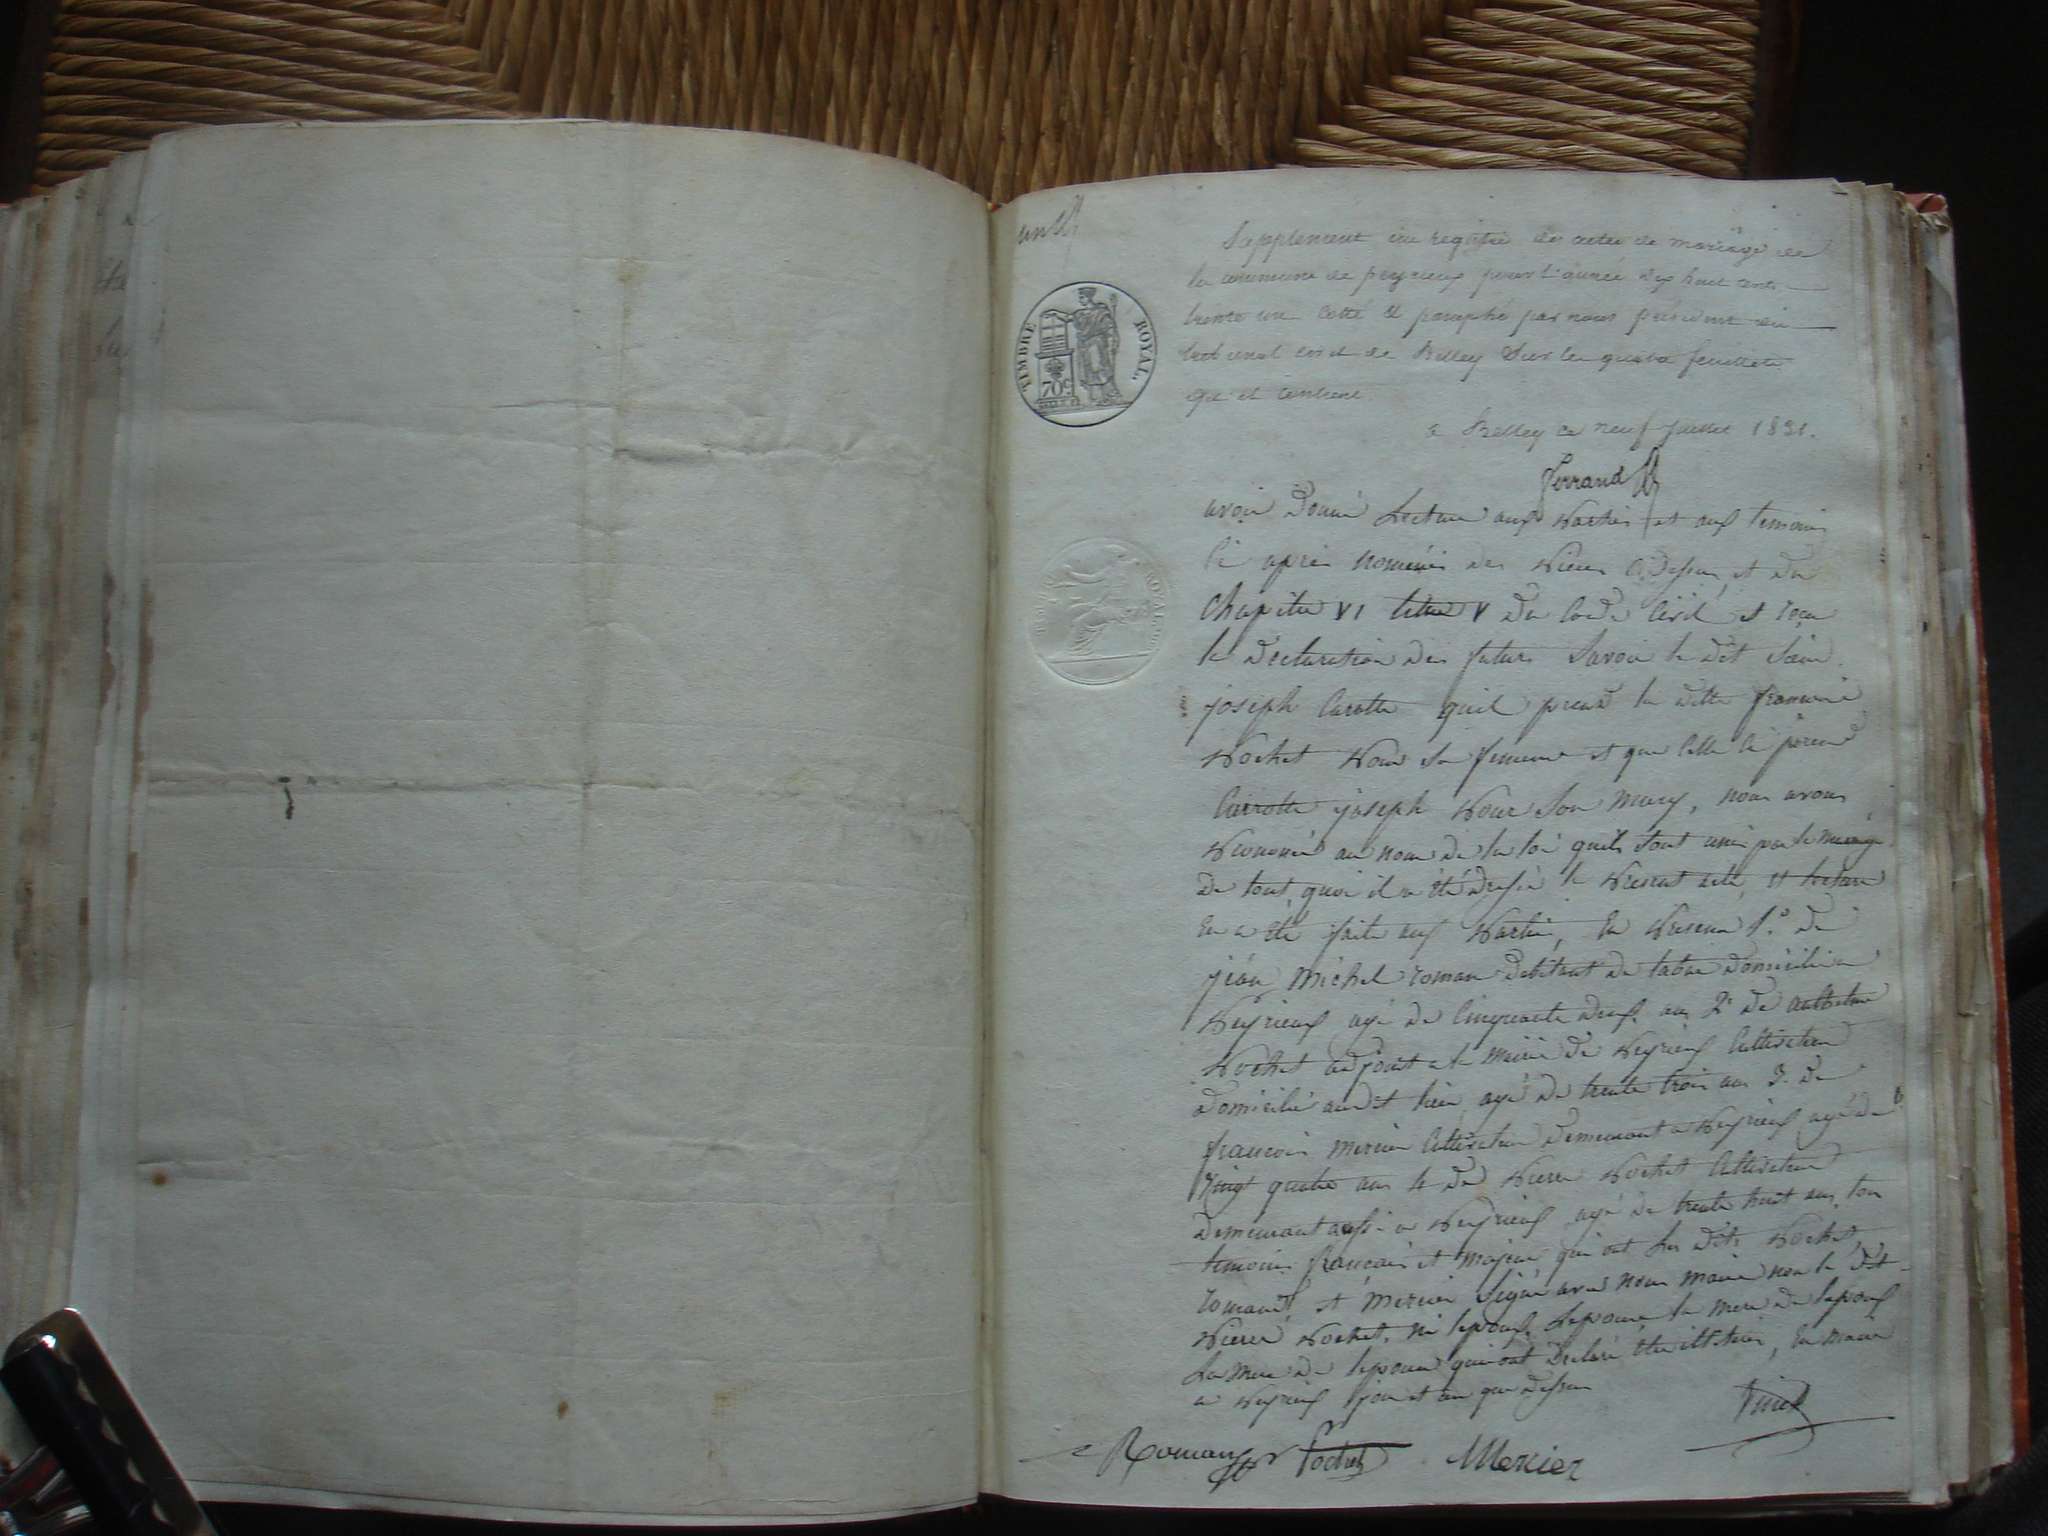 Supplement au registre des actes de mariage de
la commune de peyrieux pour l'année dix huit cent
trente un Cotté et paraphé par nous président du
tribunal civil de Belley sur les quatre feuillets
qu'il contient
a Belley ce neuf juillet 1831.
Ferrand
TIMBRE ROYAL
70c.
avoir Donné Lecture aux parties et aux temoins
Ci après nommés des pieces Cidessus, et du
Chapitre VI titre V du Code Civil et reçu
la declaration des futurs Savoir le dit Sieur
joseph Carotte quil prend la ditte francoise
pochet pour sa femme et que celle ci prend
Carrotte joseph pour Son Mary, nous avons
prononcé au nom de la loi quils sont unis par le mariage
De tout quoi il a été dressé le present acte, et lecture
en a été faite aux parties, En presence 1º. de
jean Michel roman Debitant de tabac domicilié a
peyrieux agé de Cinquante deux ans 2º De
pochet adjoint a la mairie de peyrieux Cultivateur
domicilié audit lieu agé de trente trois ans 3. De
francois mercier Cultivateur demeurant a peyrieux agé de
vingt quatre ans 4 De pierre pochet Cultivateur
demeurant aussi a peyrieux agé de trente huit ans, tous
temoins francais et majeurs qui ont les dits pochet
romand et mercier Signé avec nous maire non le dit
pierre pochet, ni lepoux, Lepouse la mere de lepoux
La Mere de lepouse qui ont declaré etre illiterés, En Mairie
a peyrieux jour et an que dessus
Roman Pochet Mercier